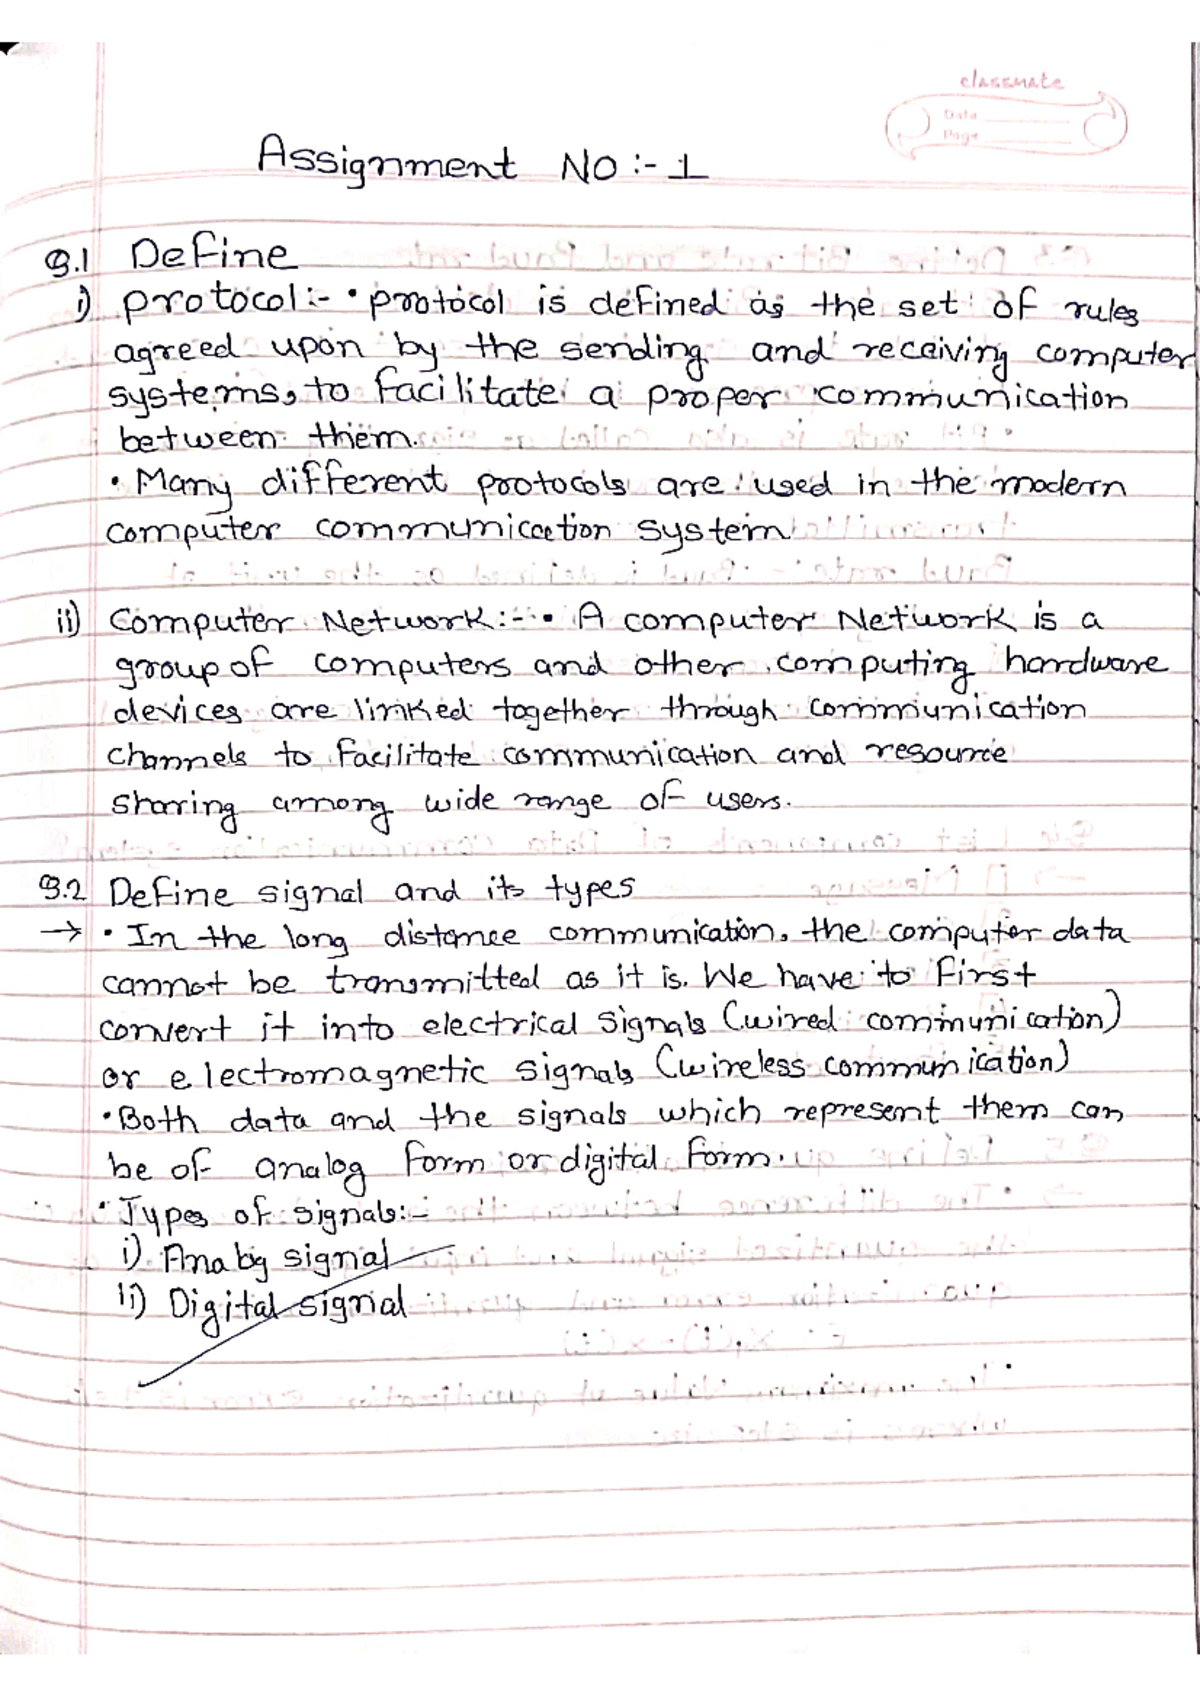 classmate
Date
Page
Assignment No :- 1
Q.1 Define
i) protocol :- • protocol is defined as the set of rules
agreed upon by the sending and receiving computer
systems, to facilitate a proper communication
between them.
• Many different protocols are used in the modern
computer communication system
ii) Computer Network :- • A computer Network is a
group of computers and other computing hardware
devices are linked together through communication
channels to facilitate communication and resource
sharing among wide range of users.
Q.2 Define signal and its types
→ • In the long distance communication, the computer data
cannot be transmitted as it is. We have to first
convert it into electrical signals (wired communication)
or electromagnetic signals (wireless communication)
• Both data and the signals which represent them can
be of analog form or digital form.
• Types of signals:-
i) Analog signal
ii) Digital signal